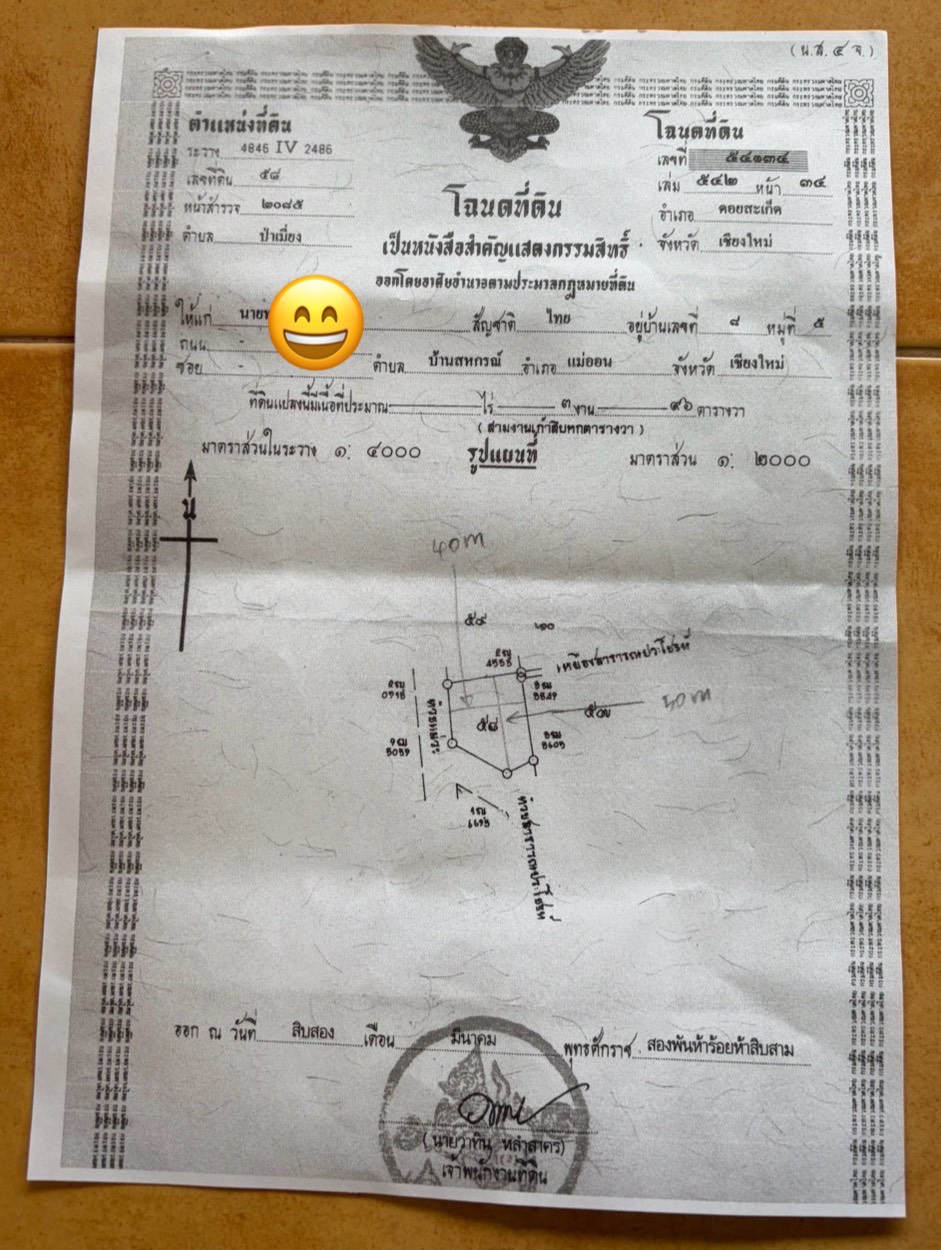 (น.ส. ๔ จ.)
ตำแหน่งที่ดิน
ระวาง 4846 IV 2486
เลขที่ดิน ๕๘
หน้าสำรวจ ๒๐๘๕
ตำบล ป่าเมี่ยง
โฉนดที่ดิน
เลขที่ ๕๔๑๓๔
เล่ม ๕๔๒ หน้า ๓๔
อำเภอ ดอยสะเก็ด
จังหวัด เชียงใหม่
โฉนดที่ดิน
เป็นหนังสือสำคัญแสดงกรรมสิทธิ์
ออกโดยอาศัยอำนาจตามประมวลกฎหมายที่ดิน
ให้แก่ นาย สัญชาติ ไทย อยู่บ้านเลขที่ ๘ หมู่ที่ ๕
ถนน -
ซอย - ตำบล บ้านสหกรณ์ อำเภอ แม่ออน จังหวัด เชียงใหม่
ที่ดินแปลงนี้มีเนื้อที่ประมาณ ไร่ ๓ งาน ๙๖ ตารางวา
(สามงานเก้าสิบหกตารางวา)
มาตราส่วนในระวาง ๑: ๔๐๐๐ รูปแผนที่ มาตราส่วน ๑: ๒๐๐๐
น
40m
๕๙
๖๐
4555
เหมืองสาธารณประโยชน์
๕๘
50m
ห้วยสาธารณประโยชน์
ออก ณ วันที่ สิบสอง เดือน มีนาคม พุทธศักราช สองพันห้าร้อยห้าสิบสาม
(นายวาทิน หลำสาคร)
เจ้าพนักงานที่ดิน